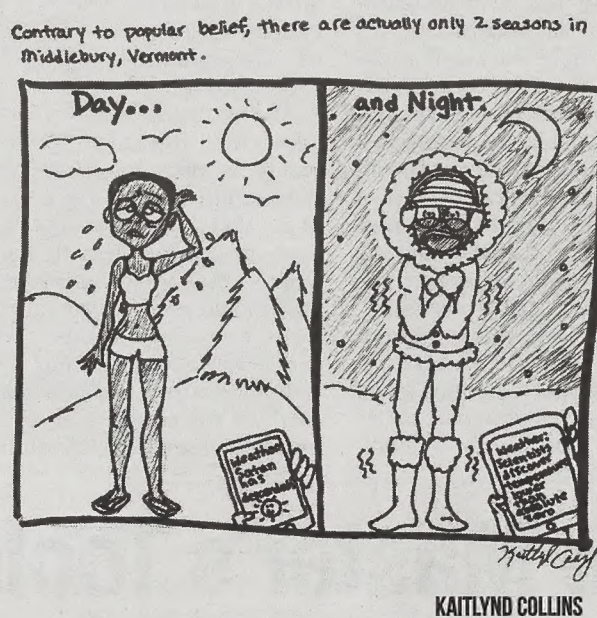 Contrary to popular belief, there are actually only 2 seasons in
Middlebury, Vermont.
Day...
and Night.
Weather:
Satan
has
Weather:
Scientists
discover
temperature
lower
than
absolute
zero
KAITLYND COLLINS